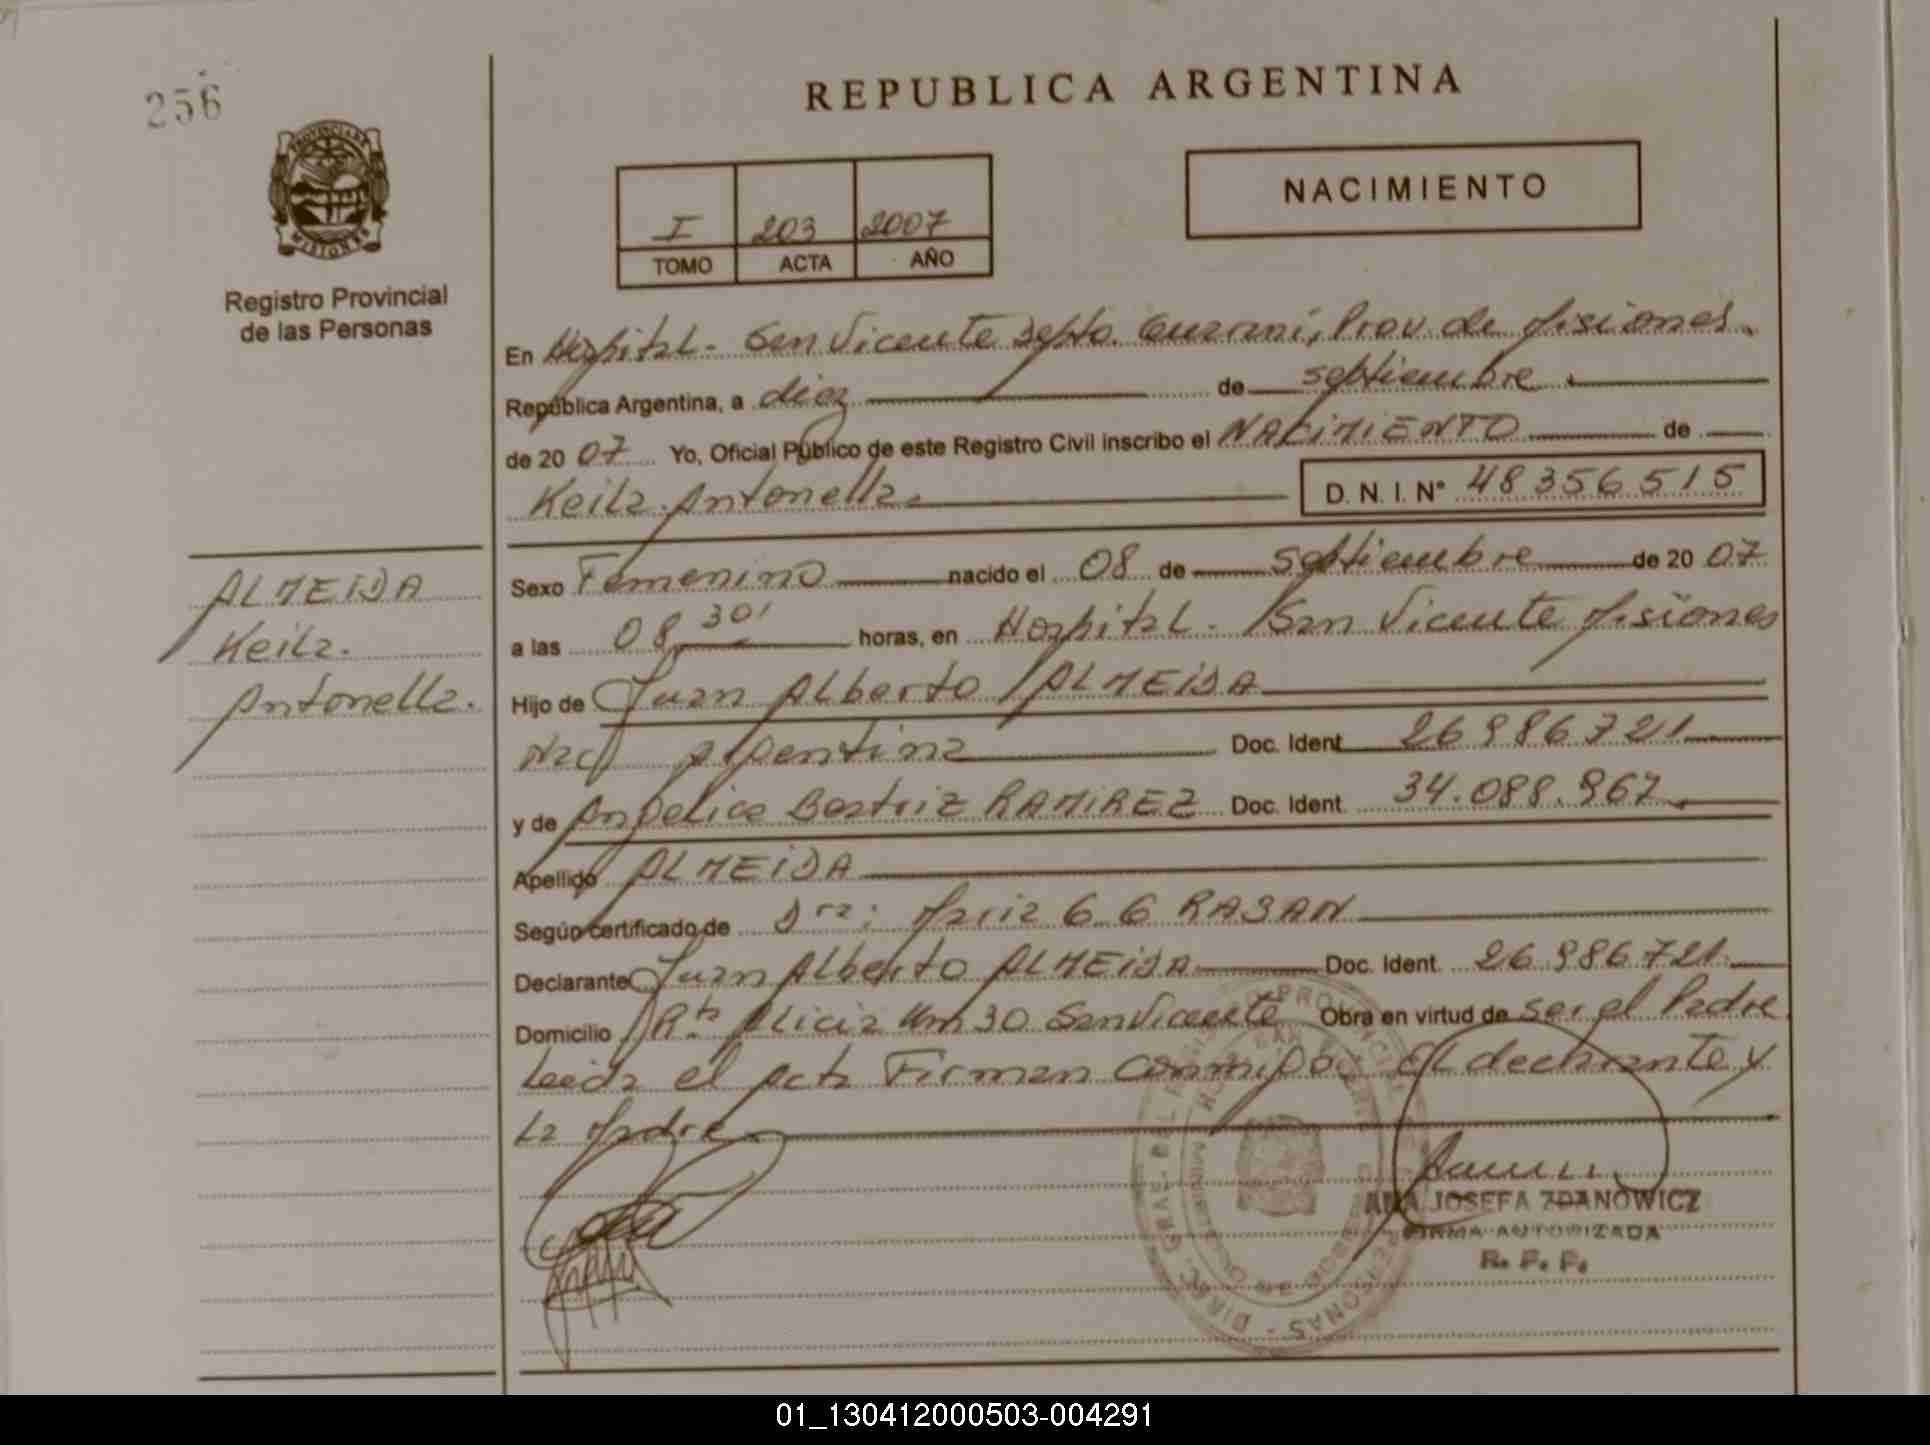 256
REPUBLICA ARGENTINA
PROVINCIA DE
MISIONES
Registro Provincial
de las Personas
I 203 2007
TOMO ACTA AÑO
NACIMIENTO
En Hospital. San Vicente Depto. Guarani, Prov. de Misiones.
República Argentina, a diez de septiembre
de 2007 Yo, Oficial Público de este Registro Civil inscribo el NACIMIENTO de
Keila Antonella. D. N. I. N° 48356515
ALMEIDA
Keila.
Antonella.
Sexo Femenino nacido el 08 de septiembre de 2007
a las 08,30' horas, en Hospital. San Vicente Misiones
Hijo de Juan Alberto ALMEIDA
Nac. Argentina Doc. Ident. 26986721
y de Angelica Beatriz RAMIREZ Doc. Ident. 34.088.967.
Apellido ALMEIDA
Según certificado de Dra: Maria G G
Declarante Juan Alberto ALMEIDA Doc. Ident. 26986721.
Domicilio Rta Alicia Km 30 San Vicente Obra en virtud de ser el Padre.
Leida el acta Firman conmigo: El declarante y
La Madre.
ANA JOSEFA ZDANOWICZ
FIRMA AUTORIZADA
R. P. P.
01_130412000503-004291